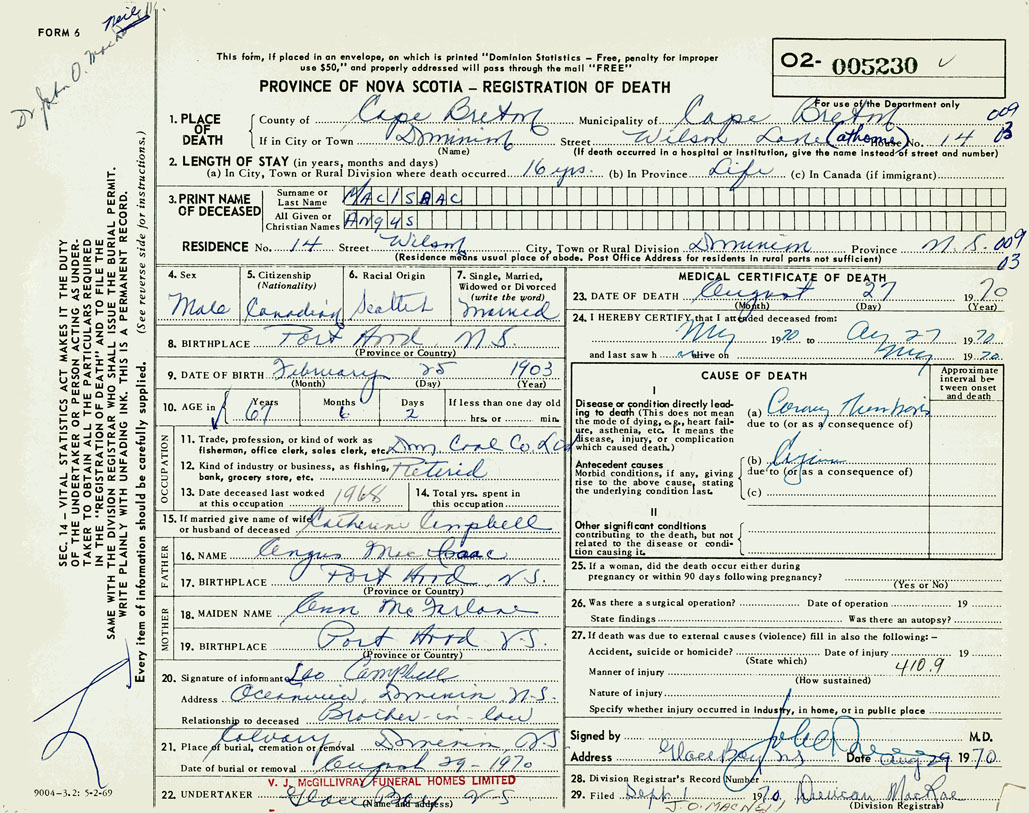 FORM 6
Neil
Dr John O. MacN
This form, if placed in an envelope, on which is printed "Dominion Statistics – Free, penalty for improper
use $50," and properly addressed will pass through the mail "FREE"
O2- 005230
For use of the Department only
PROVINCE OF NOVA SCOTIA – REGISTRATION OF DEATH
1. PLACE OF DEATH
County of Cape Breton Municipality of Cape Breton 009
If in City or Town Dominion Street Wilson Lane (at home) House No. 14 03
(Name) (If death occurred in a hospital or institution, give the name instead of street and number)
2. LENGTH OF STAY (in years, months and days)
(a) In City, Town or Rural Division where death occurred 16 yrs. (b) In Province Life (c) In Canada (if immigrant)
3. PRINT NAME OF DECEASED
Surname or Last Name MACISAAC
All Given or Christian Names ANGUS
RESIDENCE No. 14 Street Wilson City, Town or Rural Division Dominion Province N.S. 009
(Residence means usual place of abode. Post Office Address for residents in rural parts not sufficient) 03
4. Sex Male
5. Citizenship (Nationality) Canadian
6. Racial Origin Scottish
7. Single, Married, Widowed or Divorced (write the word) Married
8. BIRTHPLACE Port Hood N.S.
(Province or Country)
9. DATE OF BIRTH February 25 1903
(Month) (Day) (Year)
10. AGE in Years 67 Months 6 Days 2 If less than one day old hrs. or min.
OCCUPATION
11. Trade, profession, or kind of work as fisherman, office clerk, sales clerk, etc. Dom Coal Co. Ltd
12. Kind of industry or business, as fishing, bank, grocery store, etc. Retired
13. Date deceased last worked at this occupation 1968
14. Total yrs. spent in this occupation
15. If married give name of wife or husband of deceased Catherine Campbell
FATHER
16. NAME Angus Mac Isaac
17. BIRTHPLACE Port Hood N.S.
(Province or Country)
MOTHER
18. MAIDEN NAME Ann McFarlane
19. BIRTHPLACE Port Hood N.S.
(Province or Country)
20. Signature of informant Leo Campbell
Address Oceanview, Dominion N.S.
Relationship to deceased Brother-in-law
21. Place of burial, cremation or removal Calvary Dominion, N.S
Date of burial or removal August 29 - 1970
V. J. McGILLIVRAY FUNERAL HOMES LIMITED
22. UNDERTAKER Glace Bay N.S.
(Name and address)
MEDICAL CERTIFICATE OF DEATH
23. DATE OF DEATH August 27 1970
(Month) (Day) (Year)
24. I HEREBY CERTIFY that I attended deceased from:
1970 to Aug 27 1970
and last saw h alive on 1970
CAUSE OF DEATH
Approximate interval between onset and death
I
Disease or condition directly leading to death (This does not mean the mode of dying, e.g., heart failure, asthenia, etc. It means the disease, injury, or complication which caused death.)
(a) Coronary Thrombosis
due to (or as a consequence of)
Antecedent causes
Morbid conditions, if any, giving rise to the above cause, stating the underlying condition last.
(b) Angina
due to (or as a consequence of)
(c)
II
Other significant conditions contributing to the death, but not related to the disease or condition causing it.
25. If a woman, did the death occur either during pregnancy or within 90 days following pregnancy?
(Yes or No)
26. Was there a surgical operation? Date of operation 19
State findings Was there an autopsy?
27. If death was due to external causes (violence) fill in also the following: –
Accident, suicide or homicide? Date of injury 19
(State which)
Manner of injury 410.9
(How sustained)
Nature of injury
Specify whether injury occurred in industry, in home, or in public place
Signed by M.D.
Address Glace Bay NS Date Aug 29 1970
28. Division Registrar's Record Number
29. Filed Sept 1 1970 Duncan MacRae
J.O. MACNEIL (Division Registrar)
SEC. 14 – VITAL STATISTICS ACT MAKES IT THE DUTY
OF THE UNDERTAKER OR PERSON ACTING AS UNDER-
TAKER TO OBTAIN ALL THE PARTICULARS REQUIRED
IN THE "REGISTRATION OF DEATH" AND TO FILE THE
SAME WITH THE DIVISION REGISTRAR WHO SHALL ISSUE THE BURIAL PERMIT.
WRITE PLAINLY WITH UNFADING INK. THIS IS A PERMANENT RECORD.
Every item of information should be carefully supplied. (See reverse side for instructions.)
9004-3.2: 5-2-69